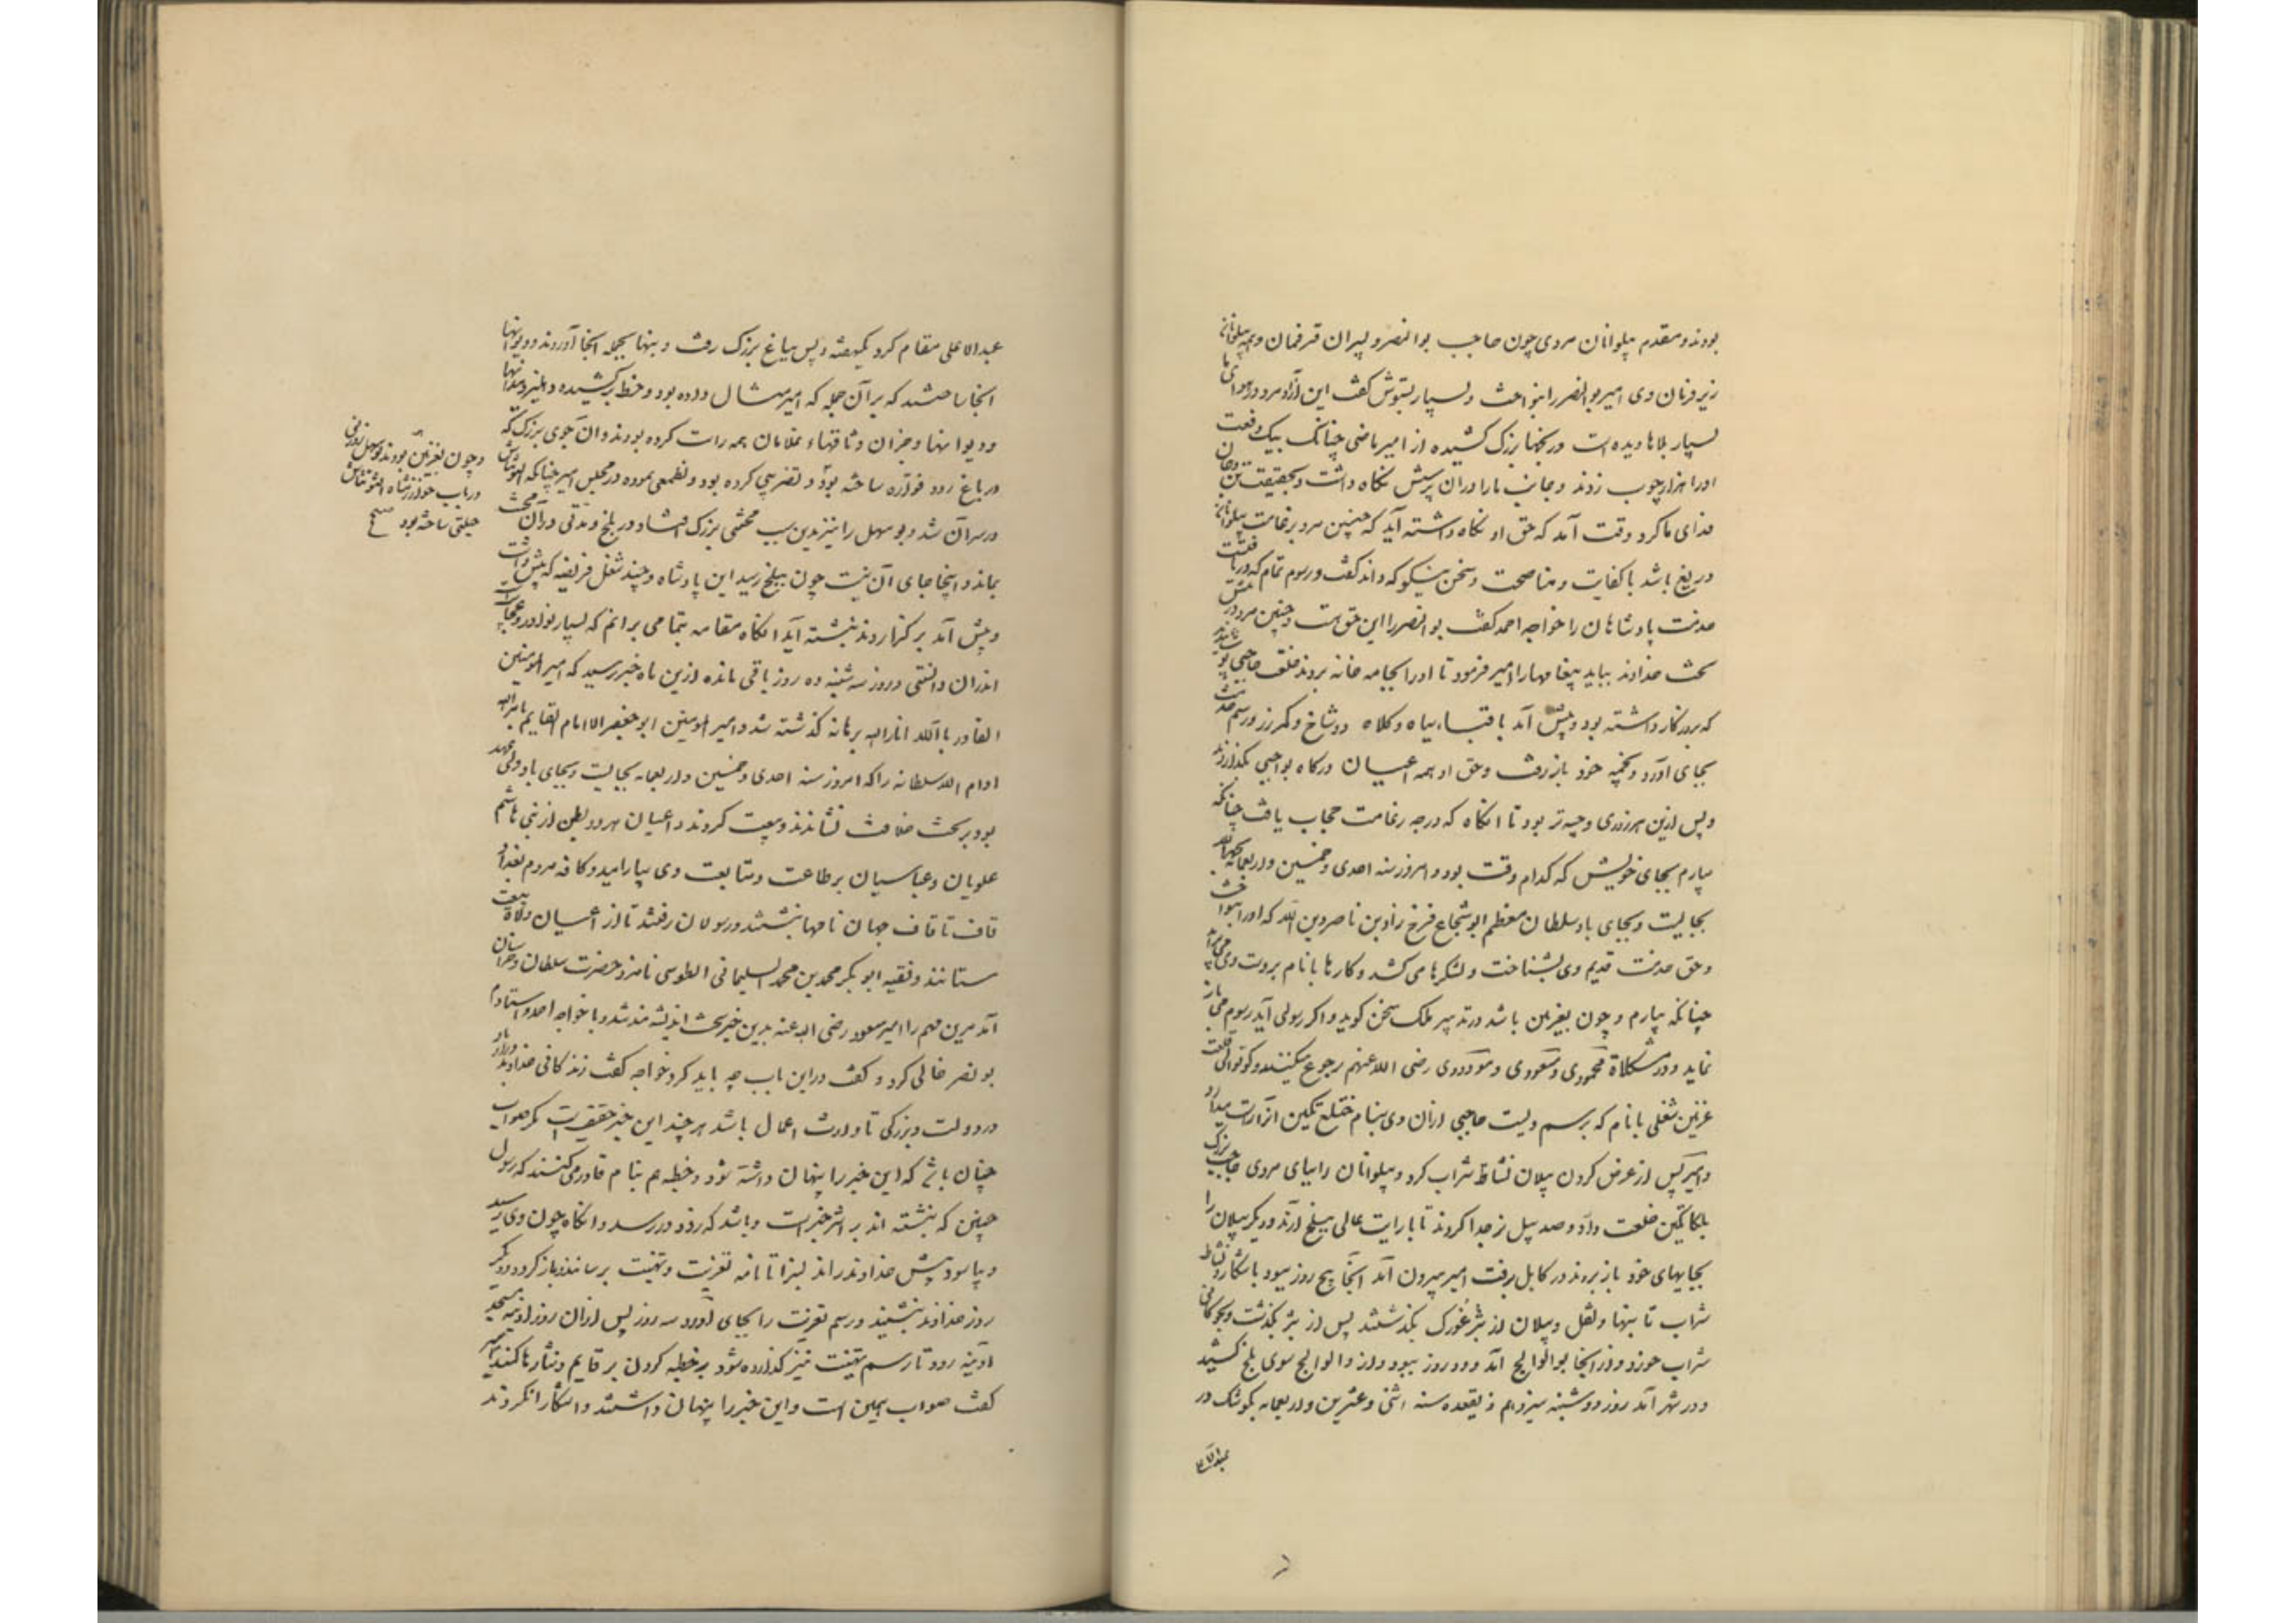 بودند و مقدم پیلوانان مردی چون حاجب بوالنصر و پسران قرقمان و همه پیلوانان
زیر فرمان وی امیر بوالنصر را بنواخت و بسیار بستودش گفت این آزادمرد در هوای ما
بسیار بلاها دیده است و رنجها بزرگ کشیده از امیر ماضی چنانک بیک دفعت
اورا هزار چوب زدند و جانب ما را در آن پرسش نگاه داشت و بحقیقت تن و جان
فدای ما کرد و وقت آمد که حق او نگاه داشته آید که چنین مرد بزعامت پیلوانان
دریغ باشد با کفایت و مناصحت و سخن نیکو که داند گفت و رسوم تمام که دریافته است
خدمت پادشاهان را خواجه احمد گفت بوالنصر را این حق هست و چنین مرد در پیش
تخت خداوند بباید پیغامها را امیر فرمود تا اورا بجامه خانه بردند و خلعت حاجبی پوشانیدند
که بروزگار داشته بود و پیش آمد با قباء سیاه و کلاه دوشاخ و کمر زر و رسم خدمت
بجای آورد و بخیمه خود باز رفت و حق او همه اعیان درگاه بواجبی بگذاردند
و پس ازین هر روزی وجیه‌تر بود تا آنگاه که درجه زعامت حجاب یافت چنانکه
بیارم بجای خویش که کدام وقت بود و امروز سنه احدی و خمسین و اربعمایه بحمدالله
بجایست و بجای باد سلطان معظم ابو شجاع فرخ زاد بن ناصر دین الله که اورا بنواخت
و حق خدمت قدیم وی بشناخت و لشکرها می کشد و کارها با نام بر دست وی می برآید
چنانکه بیارم و چون بغزنین باشد در تدبیر ملک سخن گوید و اگر رسولی آید رسوم می باز
نماید و در مشکلاة محمودی و مسعودی و مودودی رضی الله عنهم رجوع میکنند و کوتوالی قلعت
غزنین شغلی با نام که برسم ویست حاجبی از آن وی بنام ختلغ تکین آنرا راست میدارد
و امیر پس از عرض کردن پیلان نشاط شراب کرد و پیلوانان را بپای مردی حاجب بزرگ
بلکاتکین خلعت داد و صد پیل نر جدا کردند تا با رایت عالی ببلخ آرند و دیگر پیلان را
بجایهای خود باز بردند و در کابل رفت امیر بیرون آمد آنجا پنج روز ببود با شکار و نشاط
شراب تا بنها و ثقل و پیلان از بژ غورک بگذشتند پس از بژ بگذشت و بچوکانی
شراب خورد و از آنجا بوالوالج آمد و دو روز ببود و از والوالج سوی بلخ کشید
و در شهر آمد روز دوشنبه سیزدهم ذیقعده سنه اثنی و عشرین و اربعمایه بکوشک در
عبدالاعلی
عبدالاعلی مقام کرد یکهفته و پس بباغ بزرگ رفت و بنها بجمله آنجا آوردند و دیوانها
آنجا ساختند که بر آن جمله که امیر مثال داده بود و خط بر کشیده دهلیز و میدانها
و دیوانها و جزان و وثاقهاء غلامان همه راست کرده بودند و آن جوی بزرگ که
در باغ رود فواره ساخته بود و تضریبی کرده بود و تطمیعی نموده در مجلس امیر چنانکه آلتونتاش
در سر آن شد و بو سهل را نیز بدین سبب محنتی بزرگ افتاد در بلخ و مدتی در آن محنت
بماند و اینجا جای آن نیست چون ببلخ رسید این پادشاه و چند شغل فریضه که پیش داشت
و پیش آمد بر گذاردند نبشته آید آنگاه مقامه بتمامی برانم که بسیار نوادر و عجایب است
اندران دانستنی و روز سه شنبه ده روز باقی مانده ازین ماه خبر رسید که امیر المومنین
القادر بالله انار الله برهانه گذشته شد و امیر المومنین ابو جعفر الامام القایم بامر الله
ادام الله سلطانه را که امروز سنه احدی و خمسین و اربعمایه بجایست و بجای باد ولی عهد
بود بر تخت خلافت نشاندند و بیعت کردند و اعیان هر دو بطن از بنی هاشم
علویان و عباسیان بر طاعت و متابعت وی بیارامید و کافه مردم بغداد
قاف تا قاف جهان نامها نبشتند و رسولان رفتند تا از اعیان ولاة بیعت
ستانند و فقیه ابو بکر محمد بن محمد السلیمانی الطوسی نامزد حضرت سلطان و خراسان
آمد مرین مهم را امیر مسعود رضی الله عنه بدین خبر سخت اندیشه مند شد و با خواجه احمد و استادم
بو نصر خالی کرد و گفت در این باب چه باید کرد خواجه گفت زندگانی خداوند دراز باد
در دولت و بزرگی تا وارث اعمار باشد هر چند این خبر حقیقت است مگر صواب
چنان باشد که این خبر را پنهان داشته شود و خطبه هم بنام قادر می کنند که رسول
چنین که نبشته اند بر اثر خبر است و باشد که زود در رسد و آنگاه چون وی رسید
و بیاسود پیش خداوند راند بسزا تا نامه تعزیت و تهنیت برساند و باز گردد و دیگر
روز خداوند بنشیند و رسم تعزیت را بجای آورد سه روز پس از آن روز آدینه بمسجد
آدینه رود تا رسم تهنیت نیز گذارده شود بر خطبه کردن بر قایم و نثارها کنند امیر
گفت صواب همین است و این خبر را پنهان داشتند و آشکارا نکردند
و چون بغزنین بودند بو سهل زوزنی
در باب خوارزمشاه آلتونتاش
حیلتی ساخته بود صح